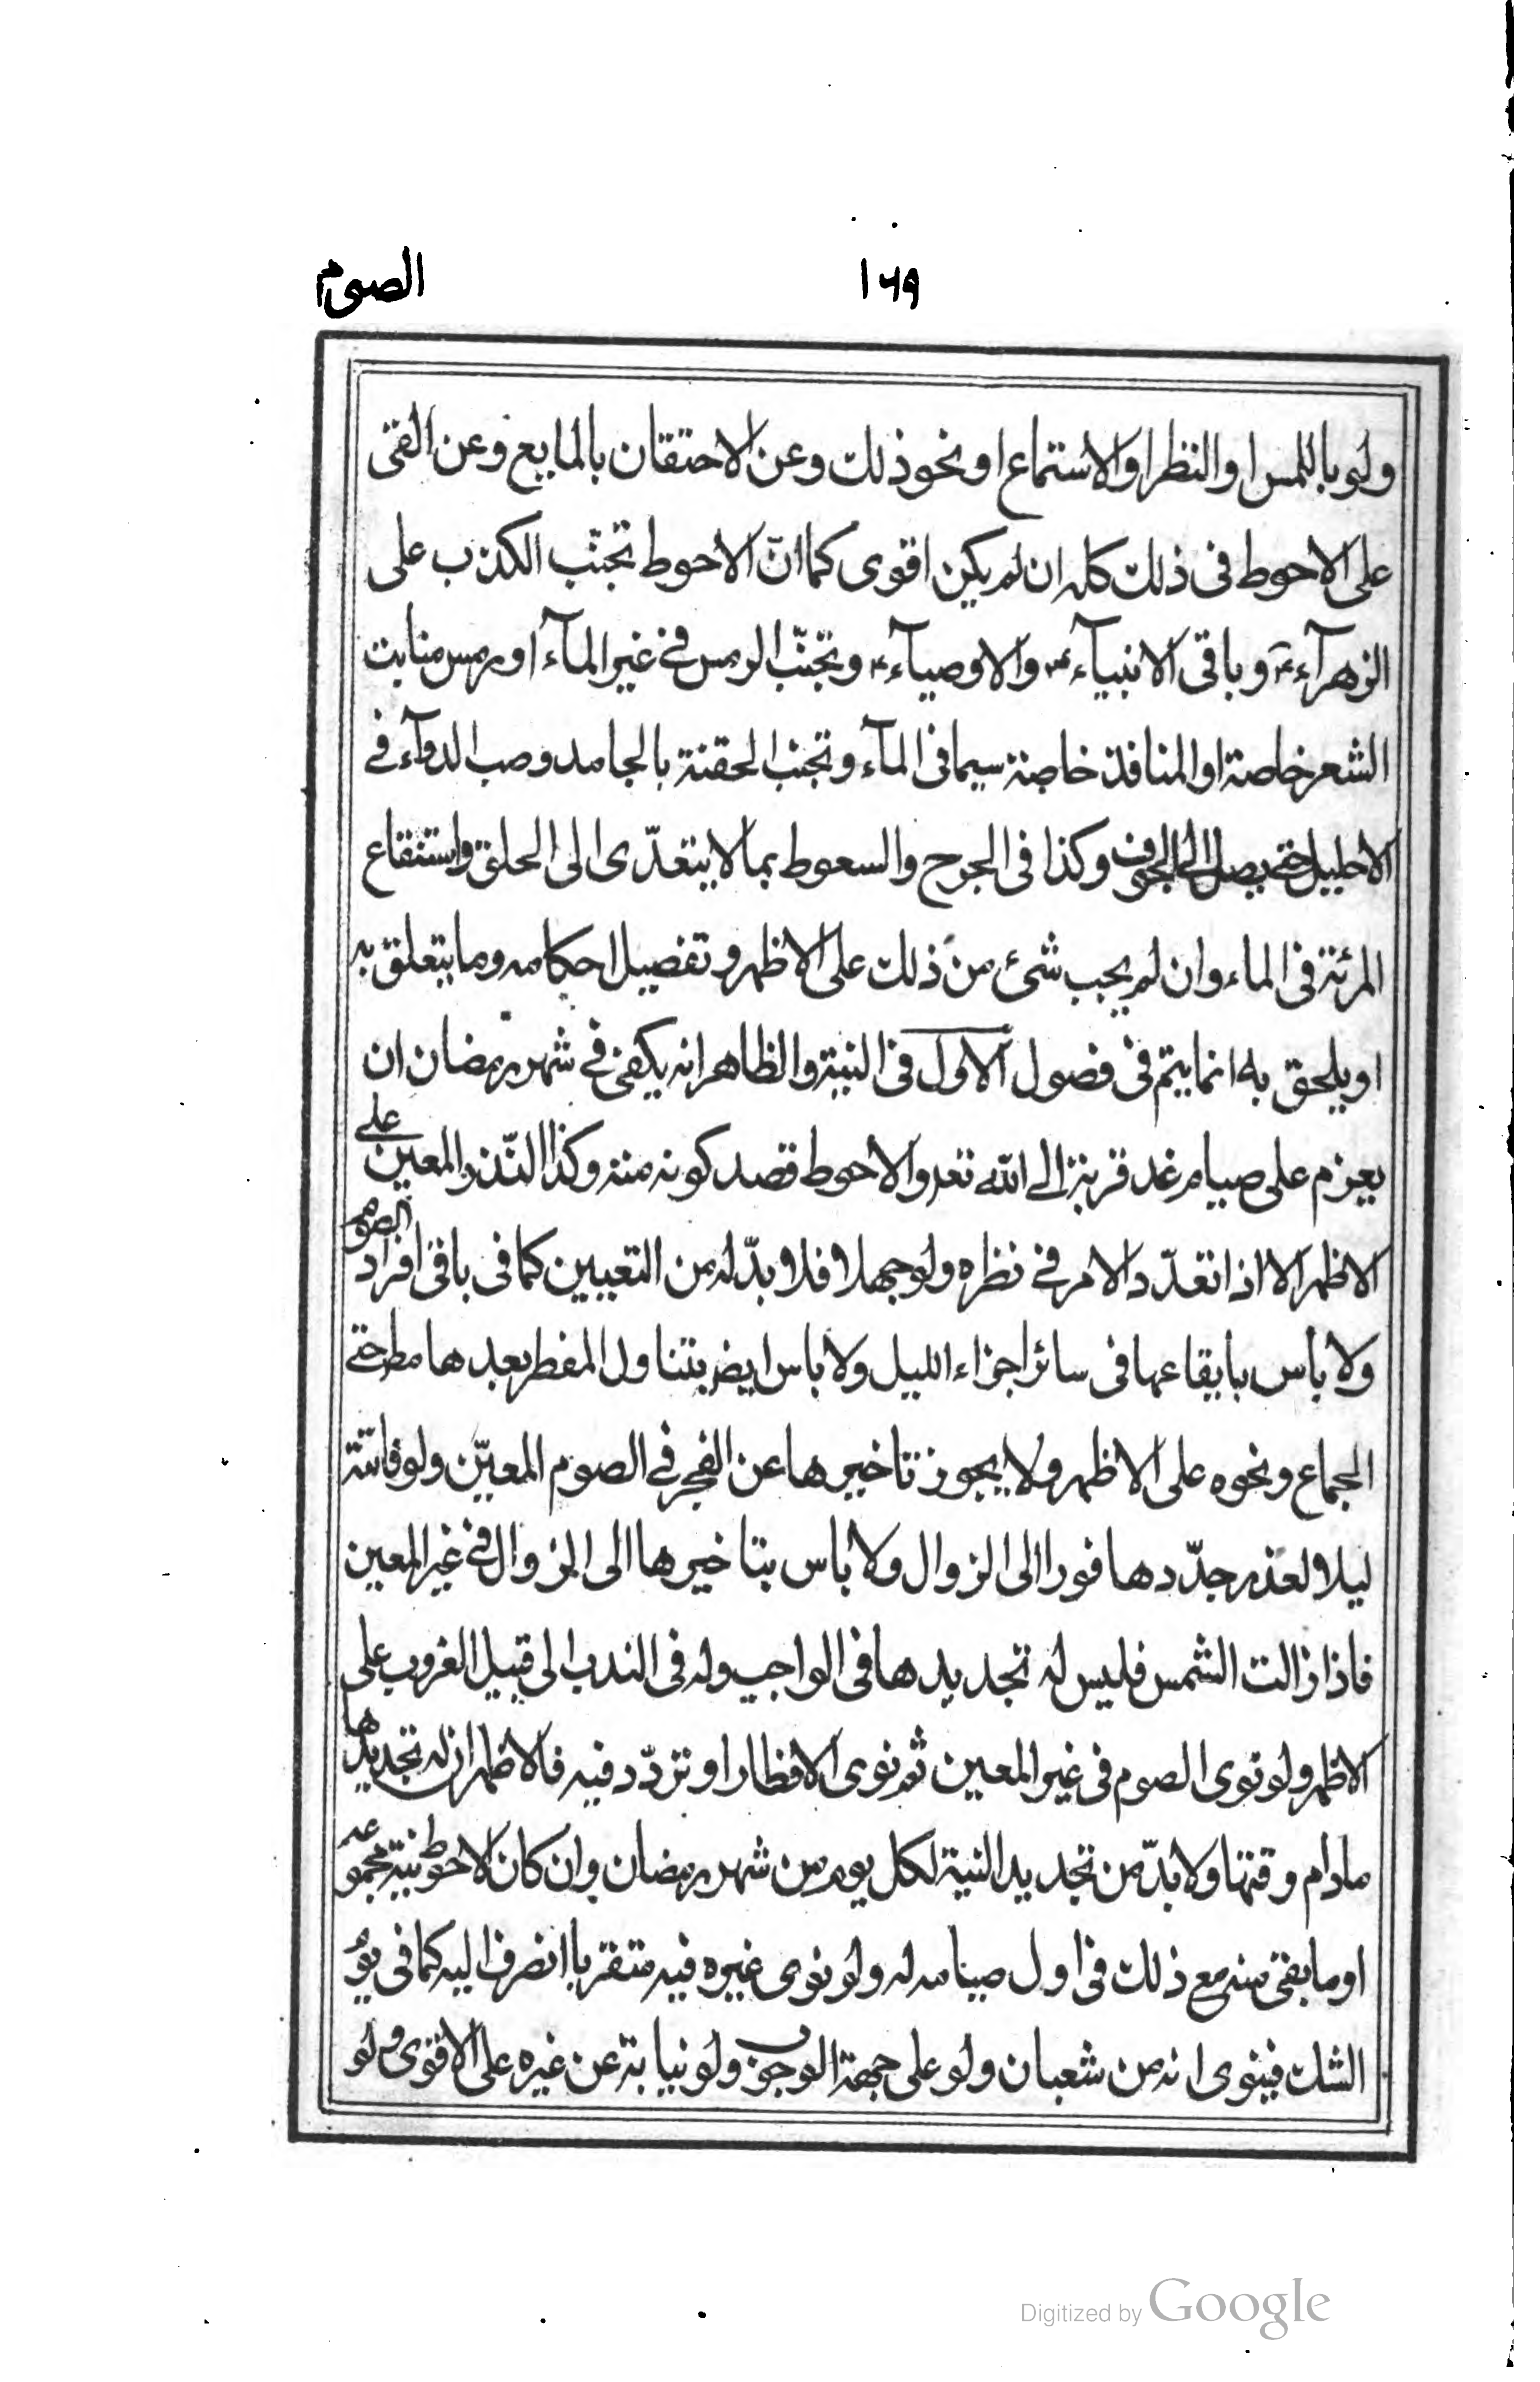 ١٦٩ الصوم
ولو باللمس او النظر او الاستماع او نحو ذلك وعن الاحتقان بالمايع وعن القئ
على الاحوط فى ذلك كله ان لم يكن اقوى كما انّ الاحوط تجنّب الكذب على
الزهرآء ع وباقى الانبيآء ع والاوصيآء ع وتجنّب الرمس فى غير المآء او رمس منابت
الشعر خاصة او المنافذ خاصة سيما فى المآء وتجنب الحقنة بالجامد وصب الدوآء فى
الاحليل حتى يصل الى الجوف وكذا فى الجرح والسعوط بما لا يتعدّى الى الحلق واستنقاع
المرئة فى الماء وان لم يجب شئ من ذلك على الاظهر وتفصيل احكامه وما يتعلق به
او يلحق به انما يتم فى فصول الاول فى النية والظاهر انه يكفى فى شهر رمضان ان
يعزم على صيام غد قربة الى الله تعم والاحوط قصد كونه منه وكذا النّذر المعين على
الاظهر الا اذا تعدّد الامر فى نظره ولو جهلا فلا بدّ له من التعيين كما فى باقى افراد الصوم
ولا باس بايقاعها فى سائر اجزاء الليل ولا باس ايض بتناول المفطر بعدها مط حتى
الجماع ونحوه على الاظهر ولا يجوز تاخيرها عن الفجر فى الصوم المعيّن ولو فاتته
ليلا لعذر جدّدها فورا الى الزوال ولا باس بتاخيرها الى الزوال فى غير المعين
فاذا زالت الشمس فليس له تجديدها فى الواجب وله فى الندب الى قبيل الغروب على
الاظهر ولو نوى الصوم فى غير المعين ثم نوى الافطار او تردّد فيه فالاظهر ان له تجديدها
مادام وقتها ولا بدّ من تجديد النية لكل يوم من شهر رمضان وان كان الاحوط نية مجموعه
او ما بقى منه مع ذلك فى اول صيامه له ولو نوى غيره فيه متقربا انصرف اليه كما فى يوم
الشك فينوى انه من شعبان ولو على جهة الوجوب ولو نيابة عن غيره على الاقوى ولو
Digitized by Google